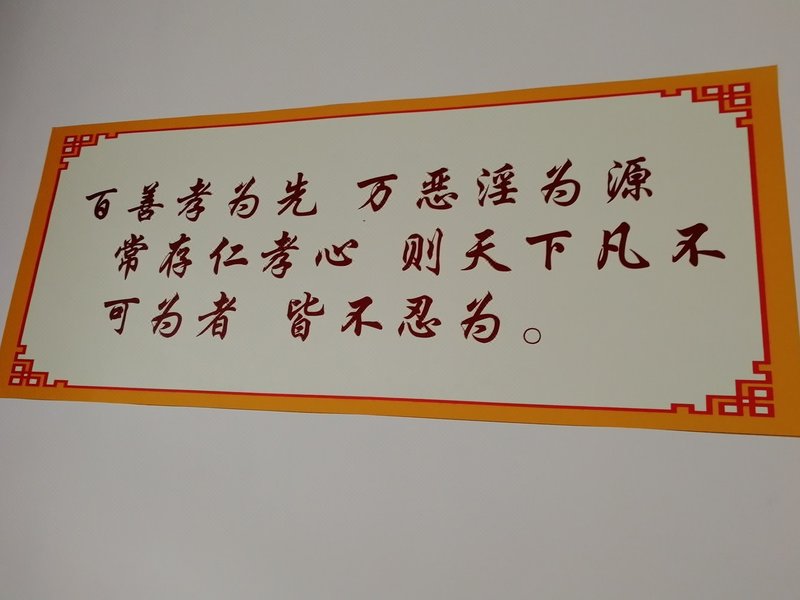 百善孝为先 万恶淫为源
常存仁孝心 则天下凡不
可为者 皆不忍为。